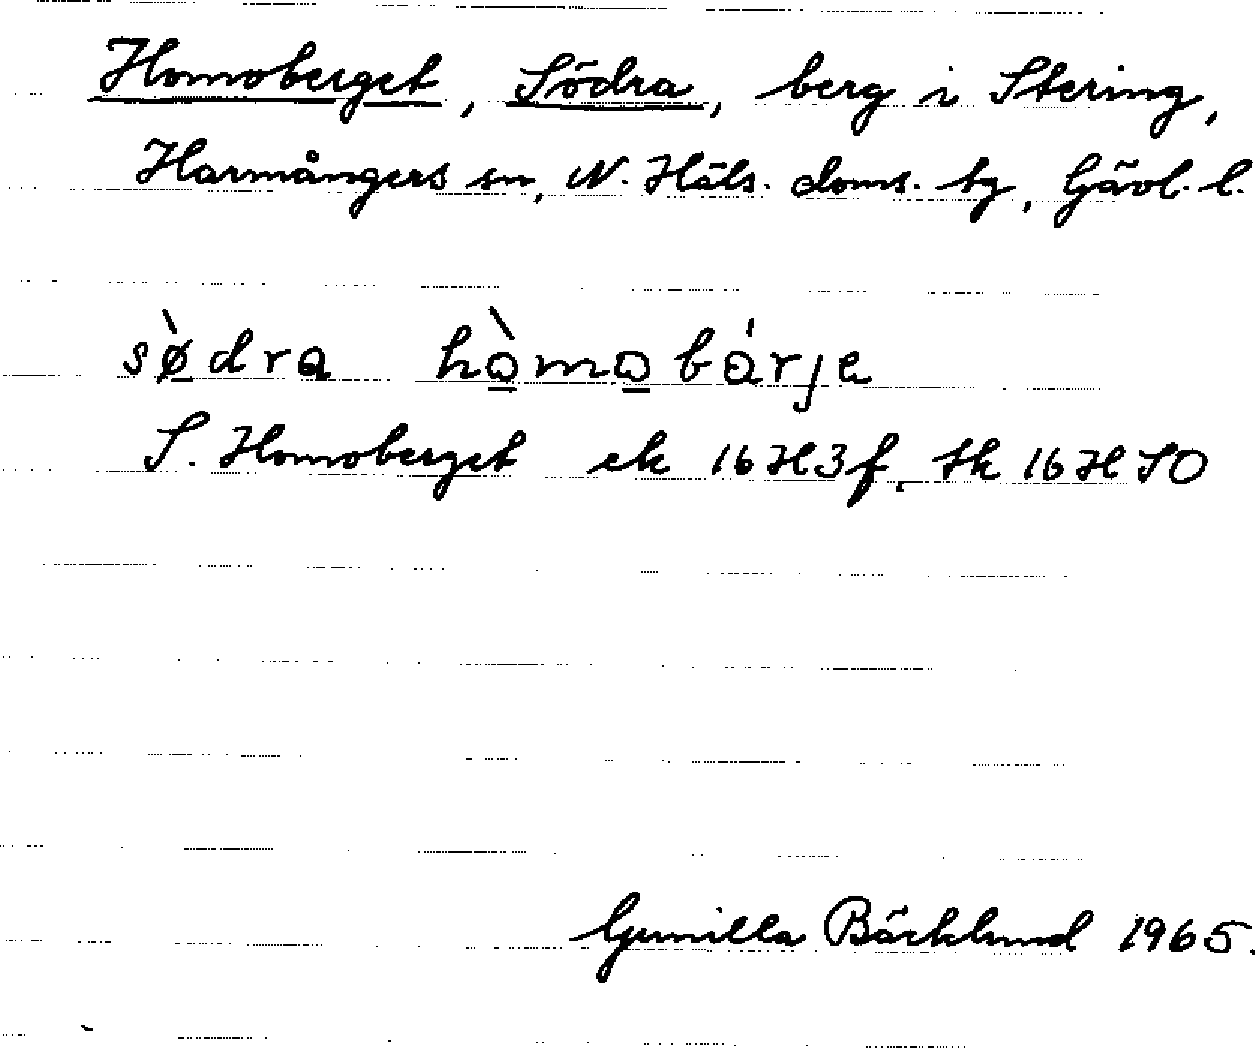 Homoberget, Södra, berg i Stering,
Harmångers sn, N. Häls. doms. tg, Gävl. l.
sø̀dra hòmobárje
S. Homoberget ek 16H3f, tk 16H SO
Gunilla Bäcklund 1965.